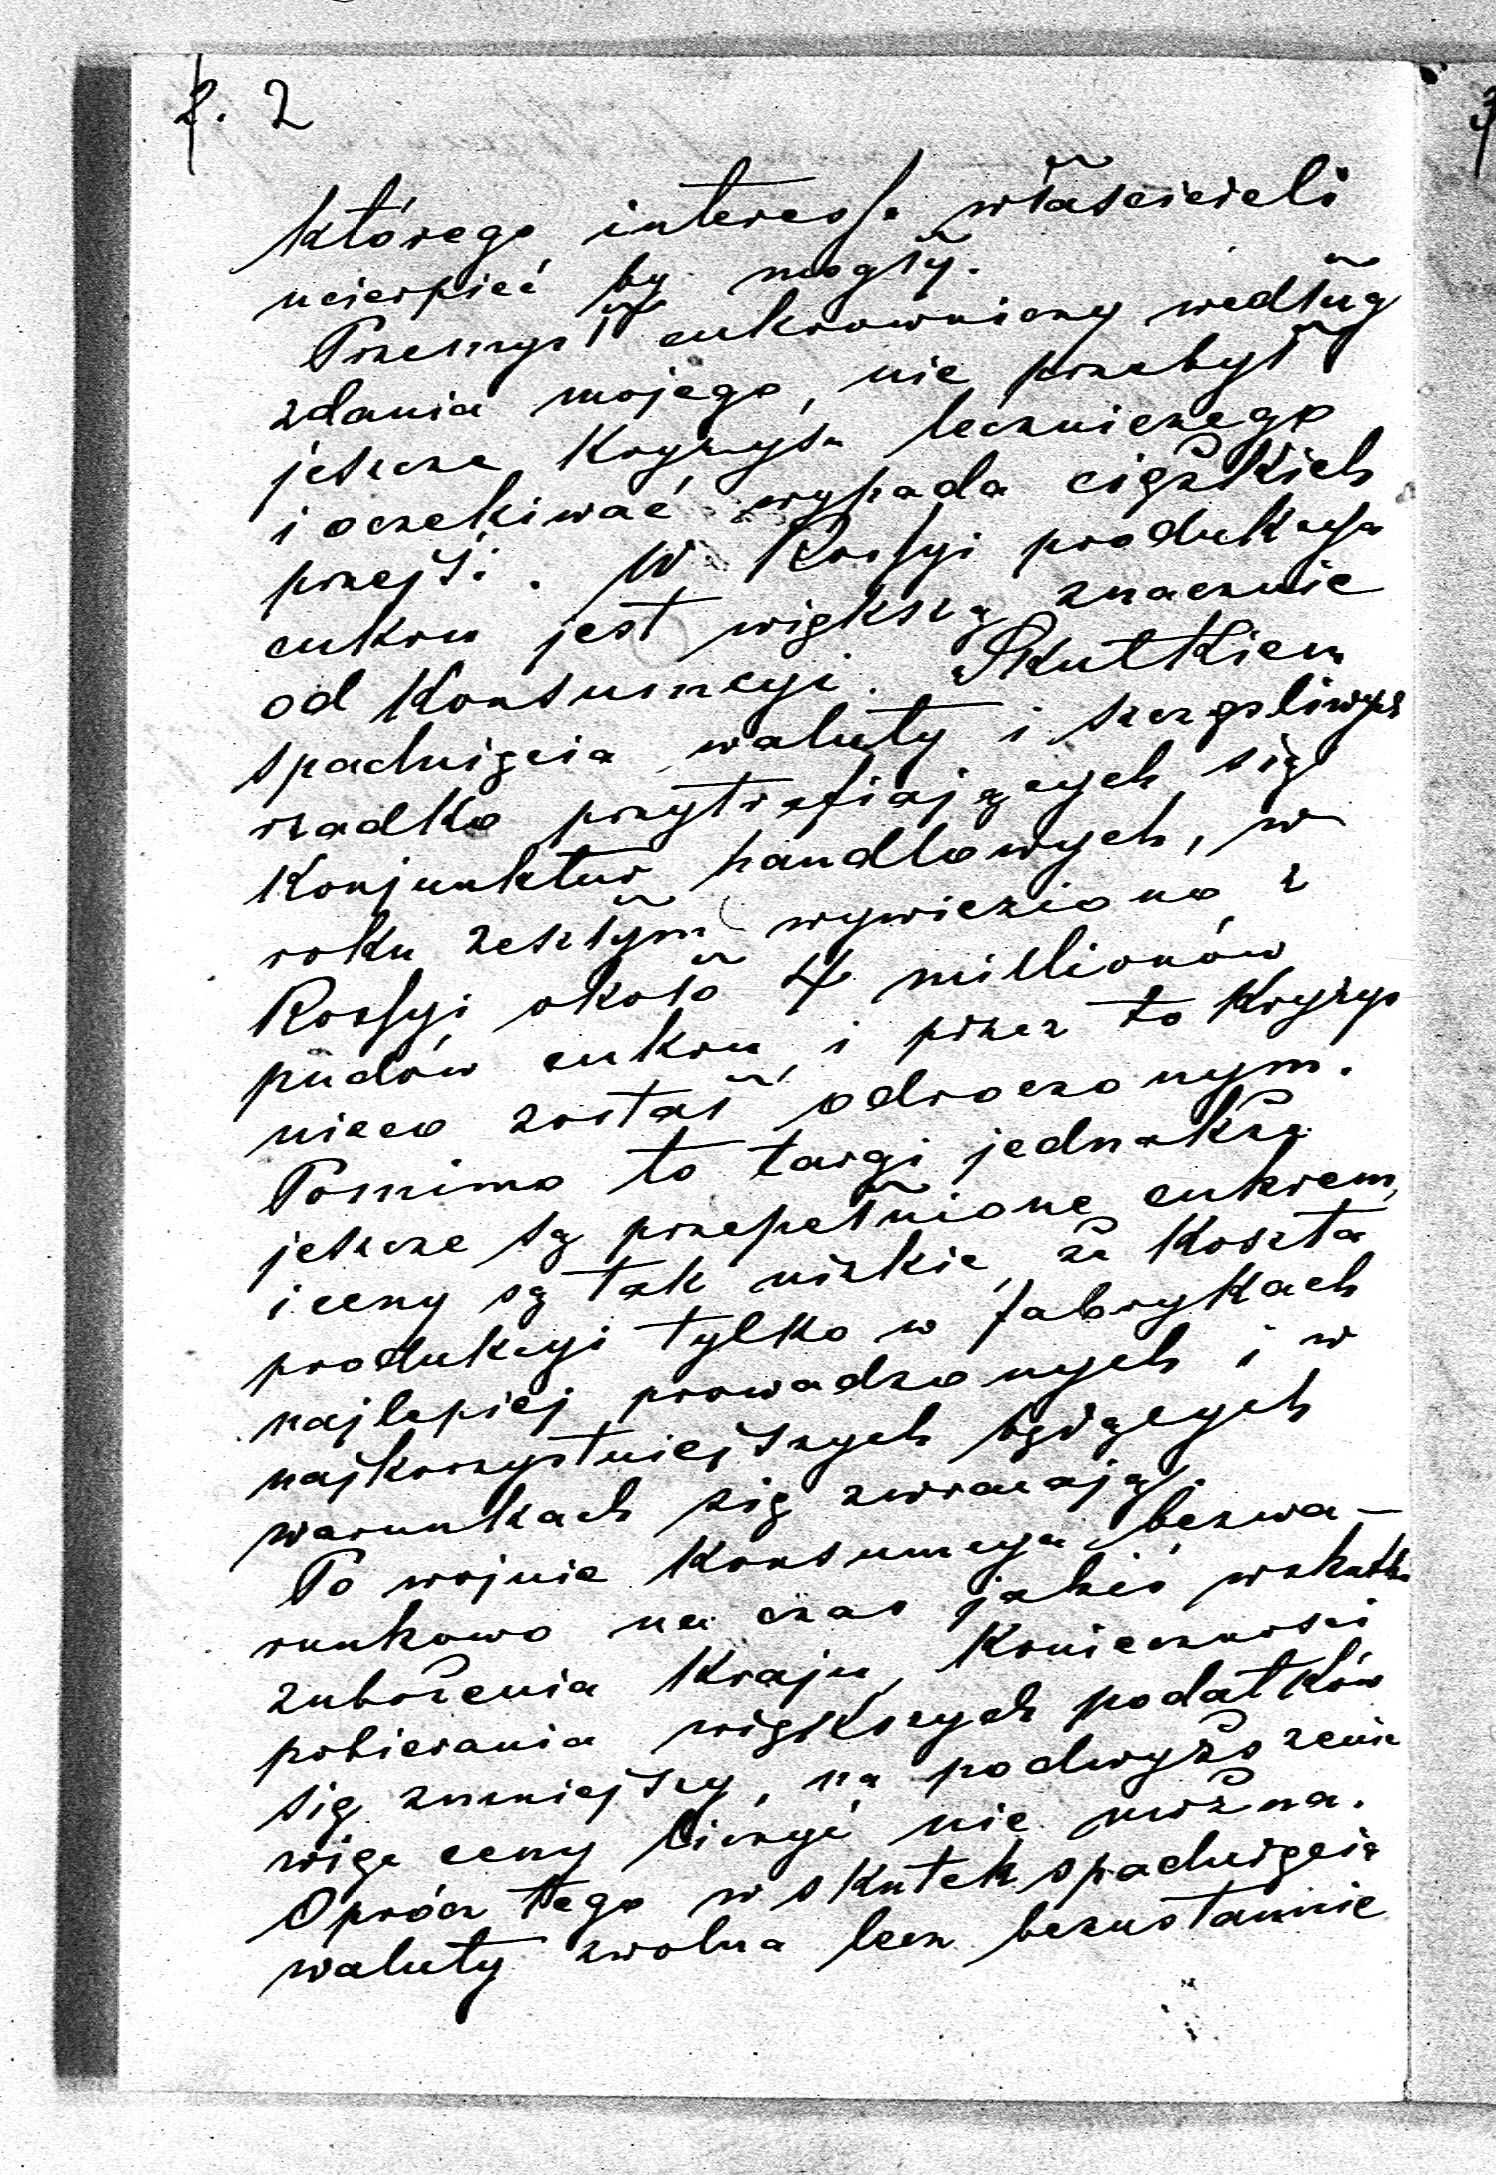 2. 2
którego interessa właścicieli
ucierpieć by mogły.
Przemysł cukrowniczy według
zdania mojego, nie przebył
jeszcze kryzysu leczniczego
i oczekiwać wypada ciężkich
przejść. W Rossyi produkcya
cukru jest większą znacznie
od konsumcyi. Skutkiem
spadnięcia waluty i szczęśliwych
rzadko przytrafiających się
konjunktur handlowych, w
roku zeszłym wywieziono z
Rossyi około 4 millionów
pudów cukru i przez to kryzys
nieco został odroczonym.
Pomimo to targi jednakże
jeszcze są przepełnione cukrem,
i ceny są tak nizkie, że koszta
produkcyi tylko w fabrykach
najlepiej prowadzonych i w
najkorzystniejszych będących
warunkach się zwracają.
Po wojnie konsumcya bezwa-
runkowo na czas jakiś wskutku
zubożenia kraju, konieczności
pobierania większych podatków
się zmniejszy, na podwyższenie
więc ceny liczyć nie można.
Oprócz tego w skutek spadnięcia
waluty zwolna lecz bezustannie